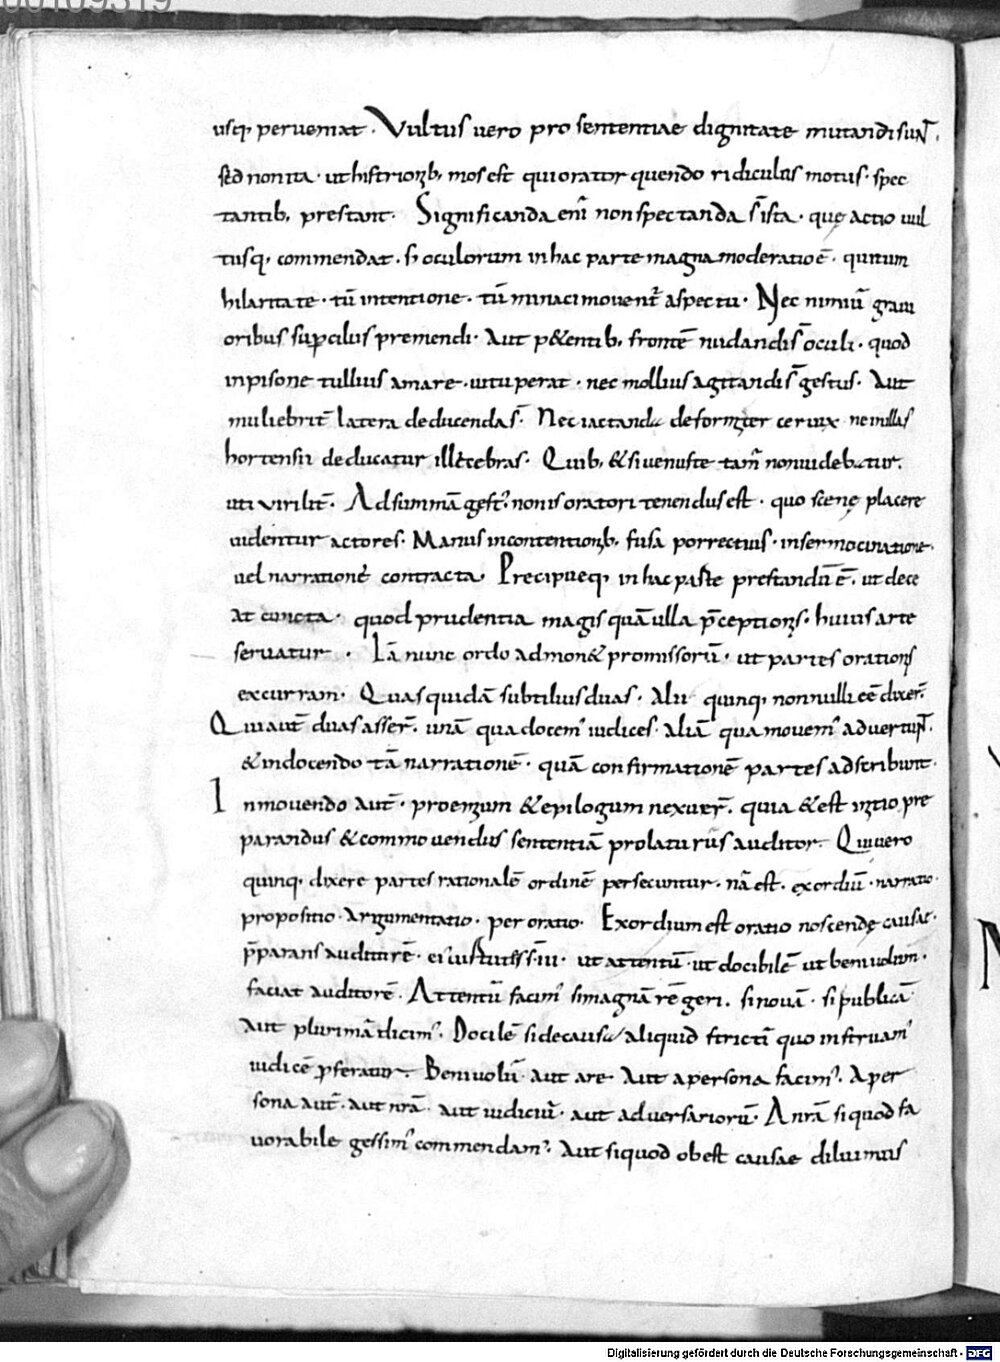 00109319
usq; perueniat. Vultus uero pro sententiae dignitate mutandi sunt̄.
sed non ita. ut histrionib; mos est qui orator quendo ridiculus motus. spec
tantib; prestant. Significanda eni̅ non spectanda s̅ ista. quę actio uul
tusq; commendat. si oculorum in hac parte magna moderatio ē. qui tum
hilaritate. tū intentione. tū minaci mouent̄ aspectu. Nec nimiū graui
oribus sup̄ciliis premendi. Aut p&entib; frontē nudandi s̅ oculi. quod
in pisone tullius amare. uituperat. nec mollius agitandi s̅ gestus. Aut
muliebrit̄ latera deducenda s̅. Nec iactanda deformiter ceruix ne in illas
hortensii deducatur illecebras. Quib; & si uenuste tam̄ non uidebatur.
uti virilit̄. Ad summā gest; non is oratori tenendus est. quo scenę placere
uidentur actores. Manus in contentionib; fusa porrectius. in sermocinatione.
uel narratione contracta. Precipueq; in hac parte prestandū ē. ut dece
at cuncta. quod prudentia magis quā ulla p̄ceptionis. huius arte
seruatur. Iā nunc ordo admon& promissorū. ut partes orationis
excurram. Quas quidā subtilius duas. Alii quinq; nonnulli eē dixer̄.
Qui aut̄ duas asser̄. unā qua docem; iudices. Aliā qua mouem; advertunt̄.
& in docendo tā narrationē. quā confirmationē partes adscribunt.
In mouendo aut̄. proemium & epilogum nexuer̄. quia & est initio pre
parandus & commouendus sententiā prolaturus auditor. Qui uero
quinq; dixere partes rationalē ordinē persecuntur. nā est. exordiū. narratio.
propositio. Argumentatio. peroratio. Exordium est oratio noscendę causae.
p̄parans auditorē. ei; uirtutes s̅. iii. ut attentū. ut docibilē ut beniuolum.
faciat auditorē. Attentū facim; si magnā rē geri. si nouā. si publicā
Aut plurimā dicim;. Docilē si de causa aliquid strictī quo instruam;
iudicē p̄feratur. Beniuolū aut a re Aut a persona facim;. A per
sona aut̄. aut nr̄a. aut iudicū. aut adversariorū. A nr̄a si quod fa
uorabile gessim; commendam;. Aut si quod obest causae diluimus
Digitalisierung gefördert durch die Deutsche Forschungsgemeinschaft - DFG